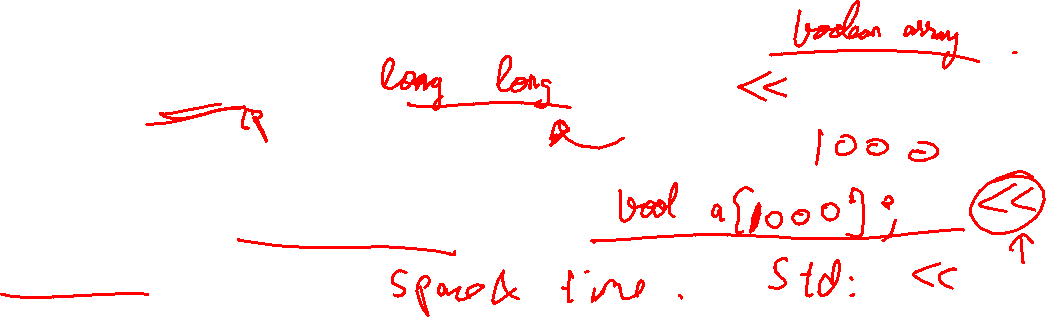 boolean array .
long long <<
1000
bool a[1000]; <<
space & time . std: <<